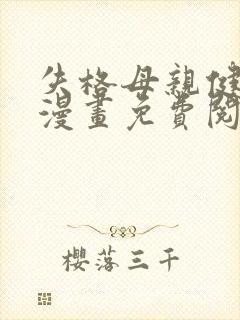 失格母親健
漫畫免費閱
櫻落三千